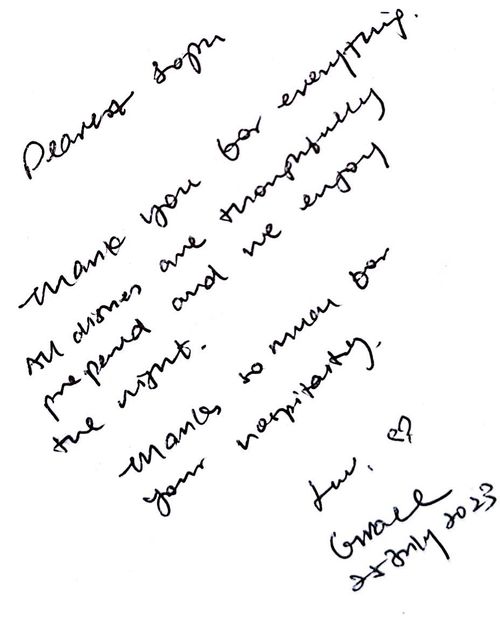 Dearest Sopu
Thank you for everything.
All dishes are thoughtfully
prepared and we enjoy
the night.
Thanks so much for
your hospitality.
Luv, ♡
Grace
25 July 2023